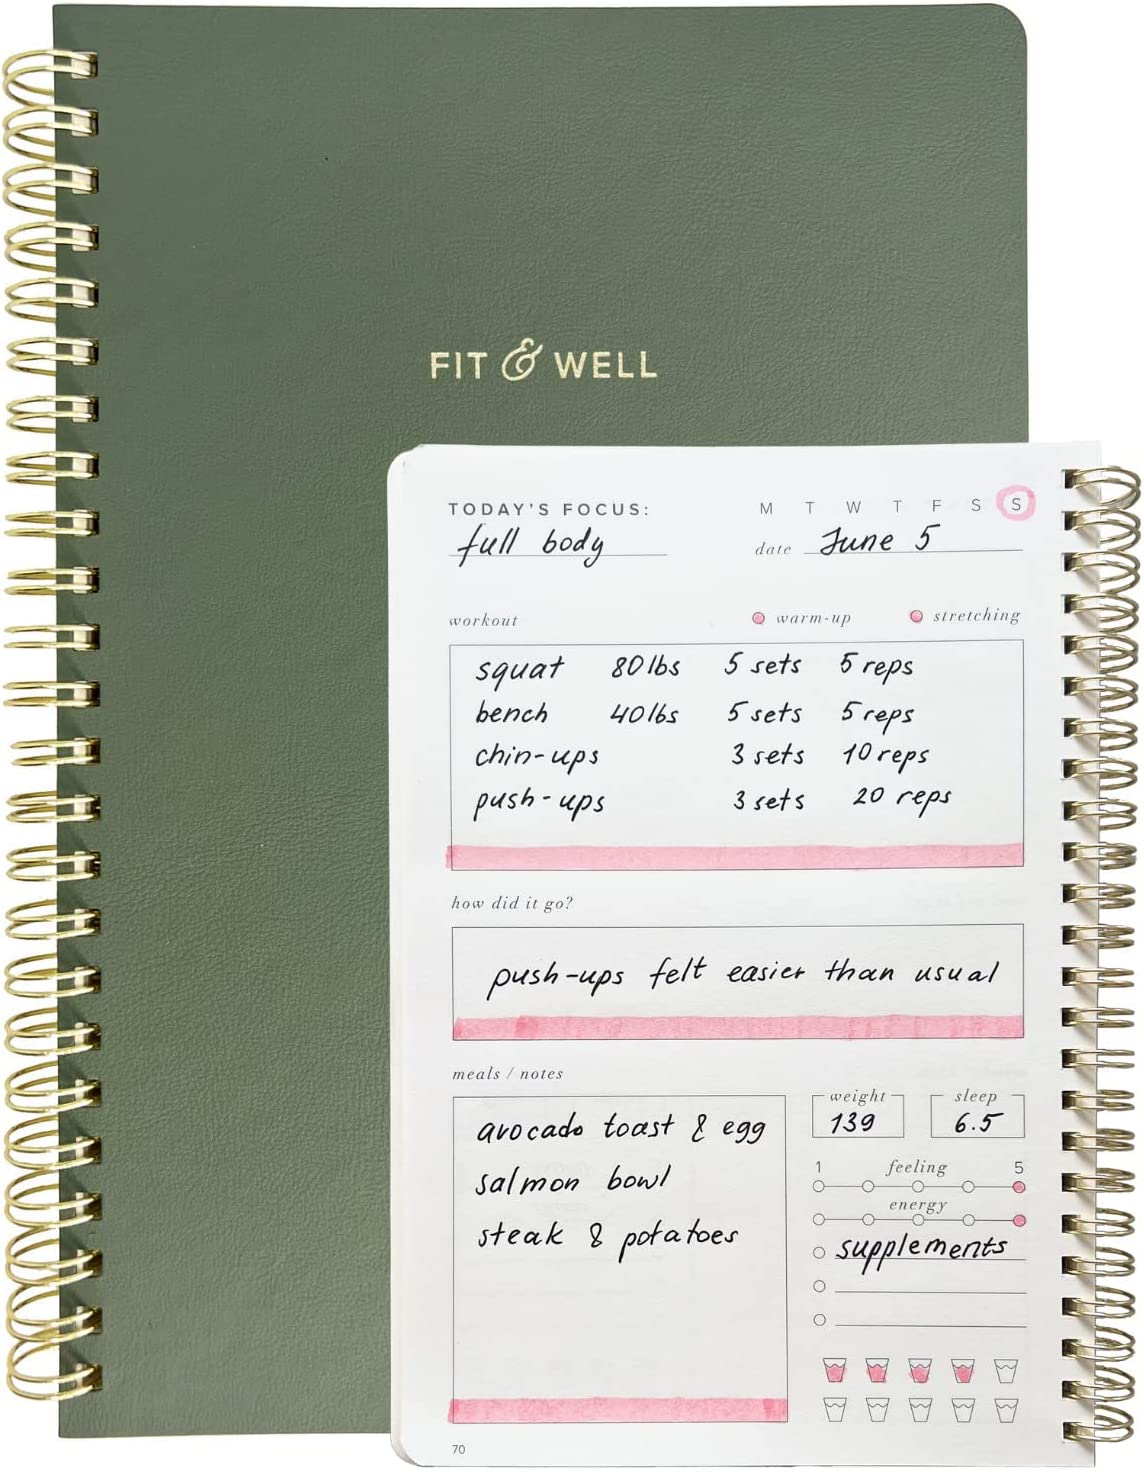 FIT & WELL
TODAY'S FOCUS: M T W T F S S
full body date June 5
workout warm-up stretching
squat 80lbs 5 sets 5 reps
bench 40lbs 5 sets 5 reps
chin-ups 3 sets 10 reps
push-ups 3 sets 20 reps
how did it go?
push-ups felt easier than usual
meals / notes
avocado toast & egg
salmon bowl
steak & potatoes
weight sleep
139 6.5
1 feeling 5
energy
supplements
70